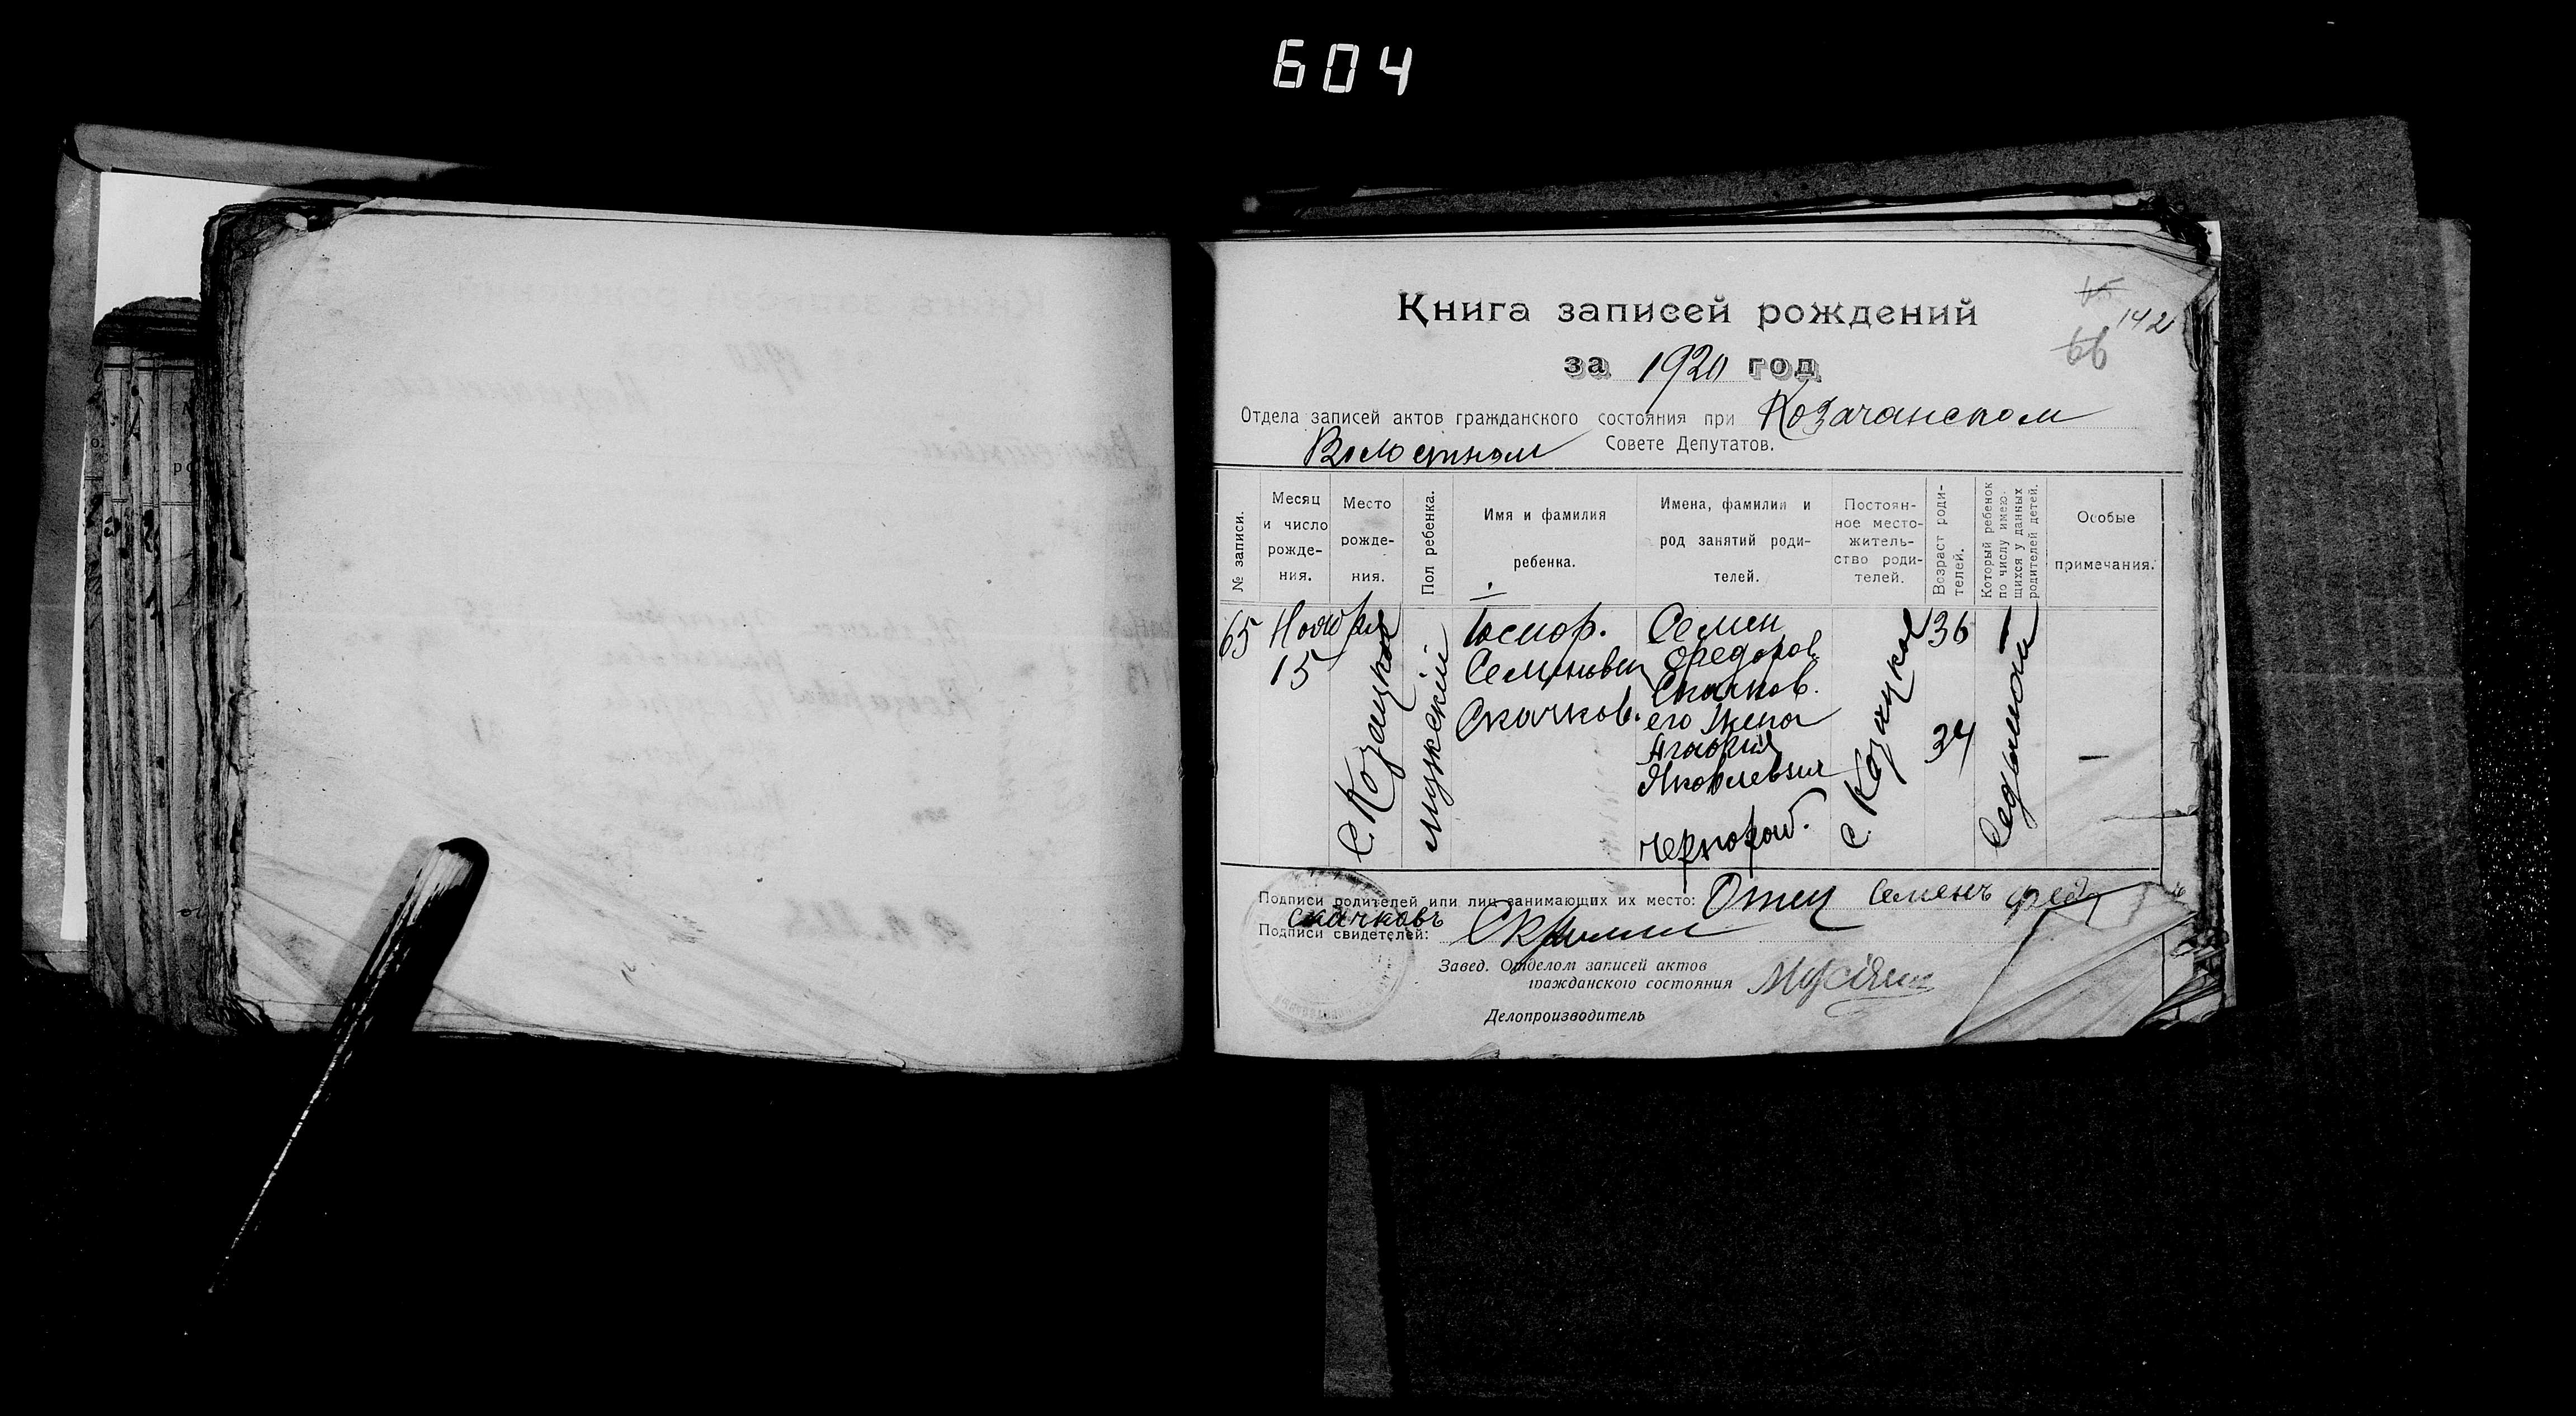 604
Книга записей рождений
за 1920 год
142
66
Отдела записей актов гражданского состояния при Козачанском
Волостном Совете Депутатов.
№ записи.
Месяц и число рожде-ния.
Место рожде-ния.
Пол ребенка.
Имя и фамилия ребенка.
Имена, фамилии и род занятий роди-телей.
Постоян-ное место-житель-ство роди-телей.
Возраст роди-телей.
Который ребенок по числу имею-щихся у данных родителей детей.
Особые примечания.
65
Ноября
15
с. Козацкое
мужский
Семенович
Скачков.
Семен
Федоров
Скачков.
его жена
Яковлевна
с. Козацкое
36
34
Седьмой
—
Подписи родителей или лиц занимающих их место: Отец Семенъ Фед
Скачковъ
Подписи свидетелей:
Завед. Отделом записей актов
гражданского состояния
Делопроизводитель